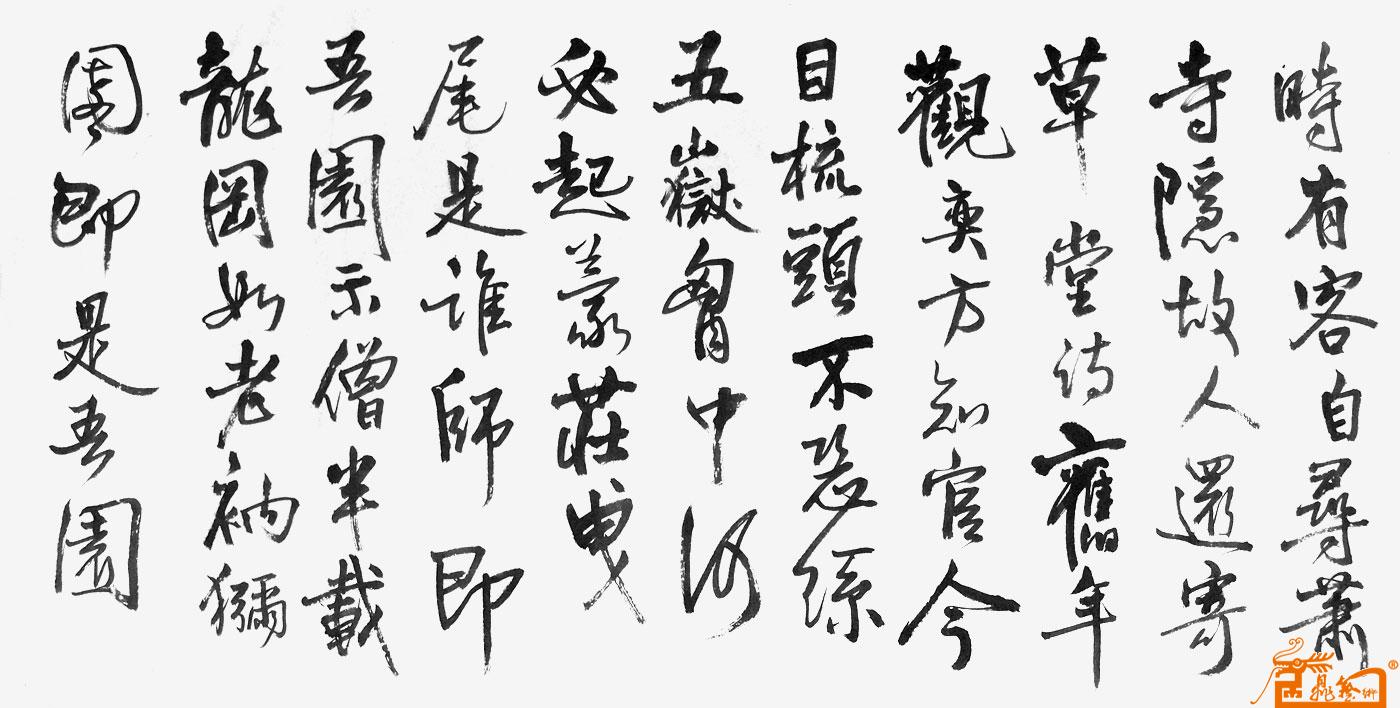 時有客自尋蕭
寺隱故人還寄
草堂詩舊年
觀奕方知官今
日梳頭不恐絲
五嶽胸中何
必起蒙莊曳
尾是誰師即
吾園示僧半載
龍岡如老衲獮
園即是吾園